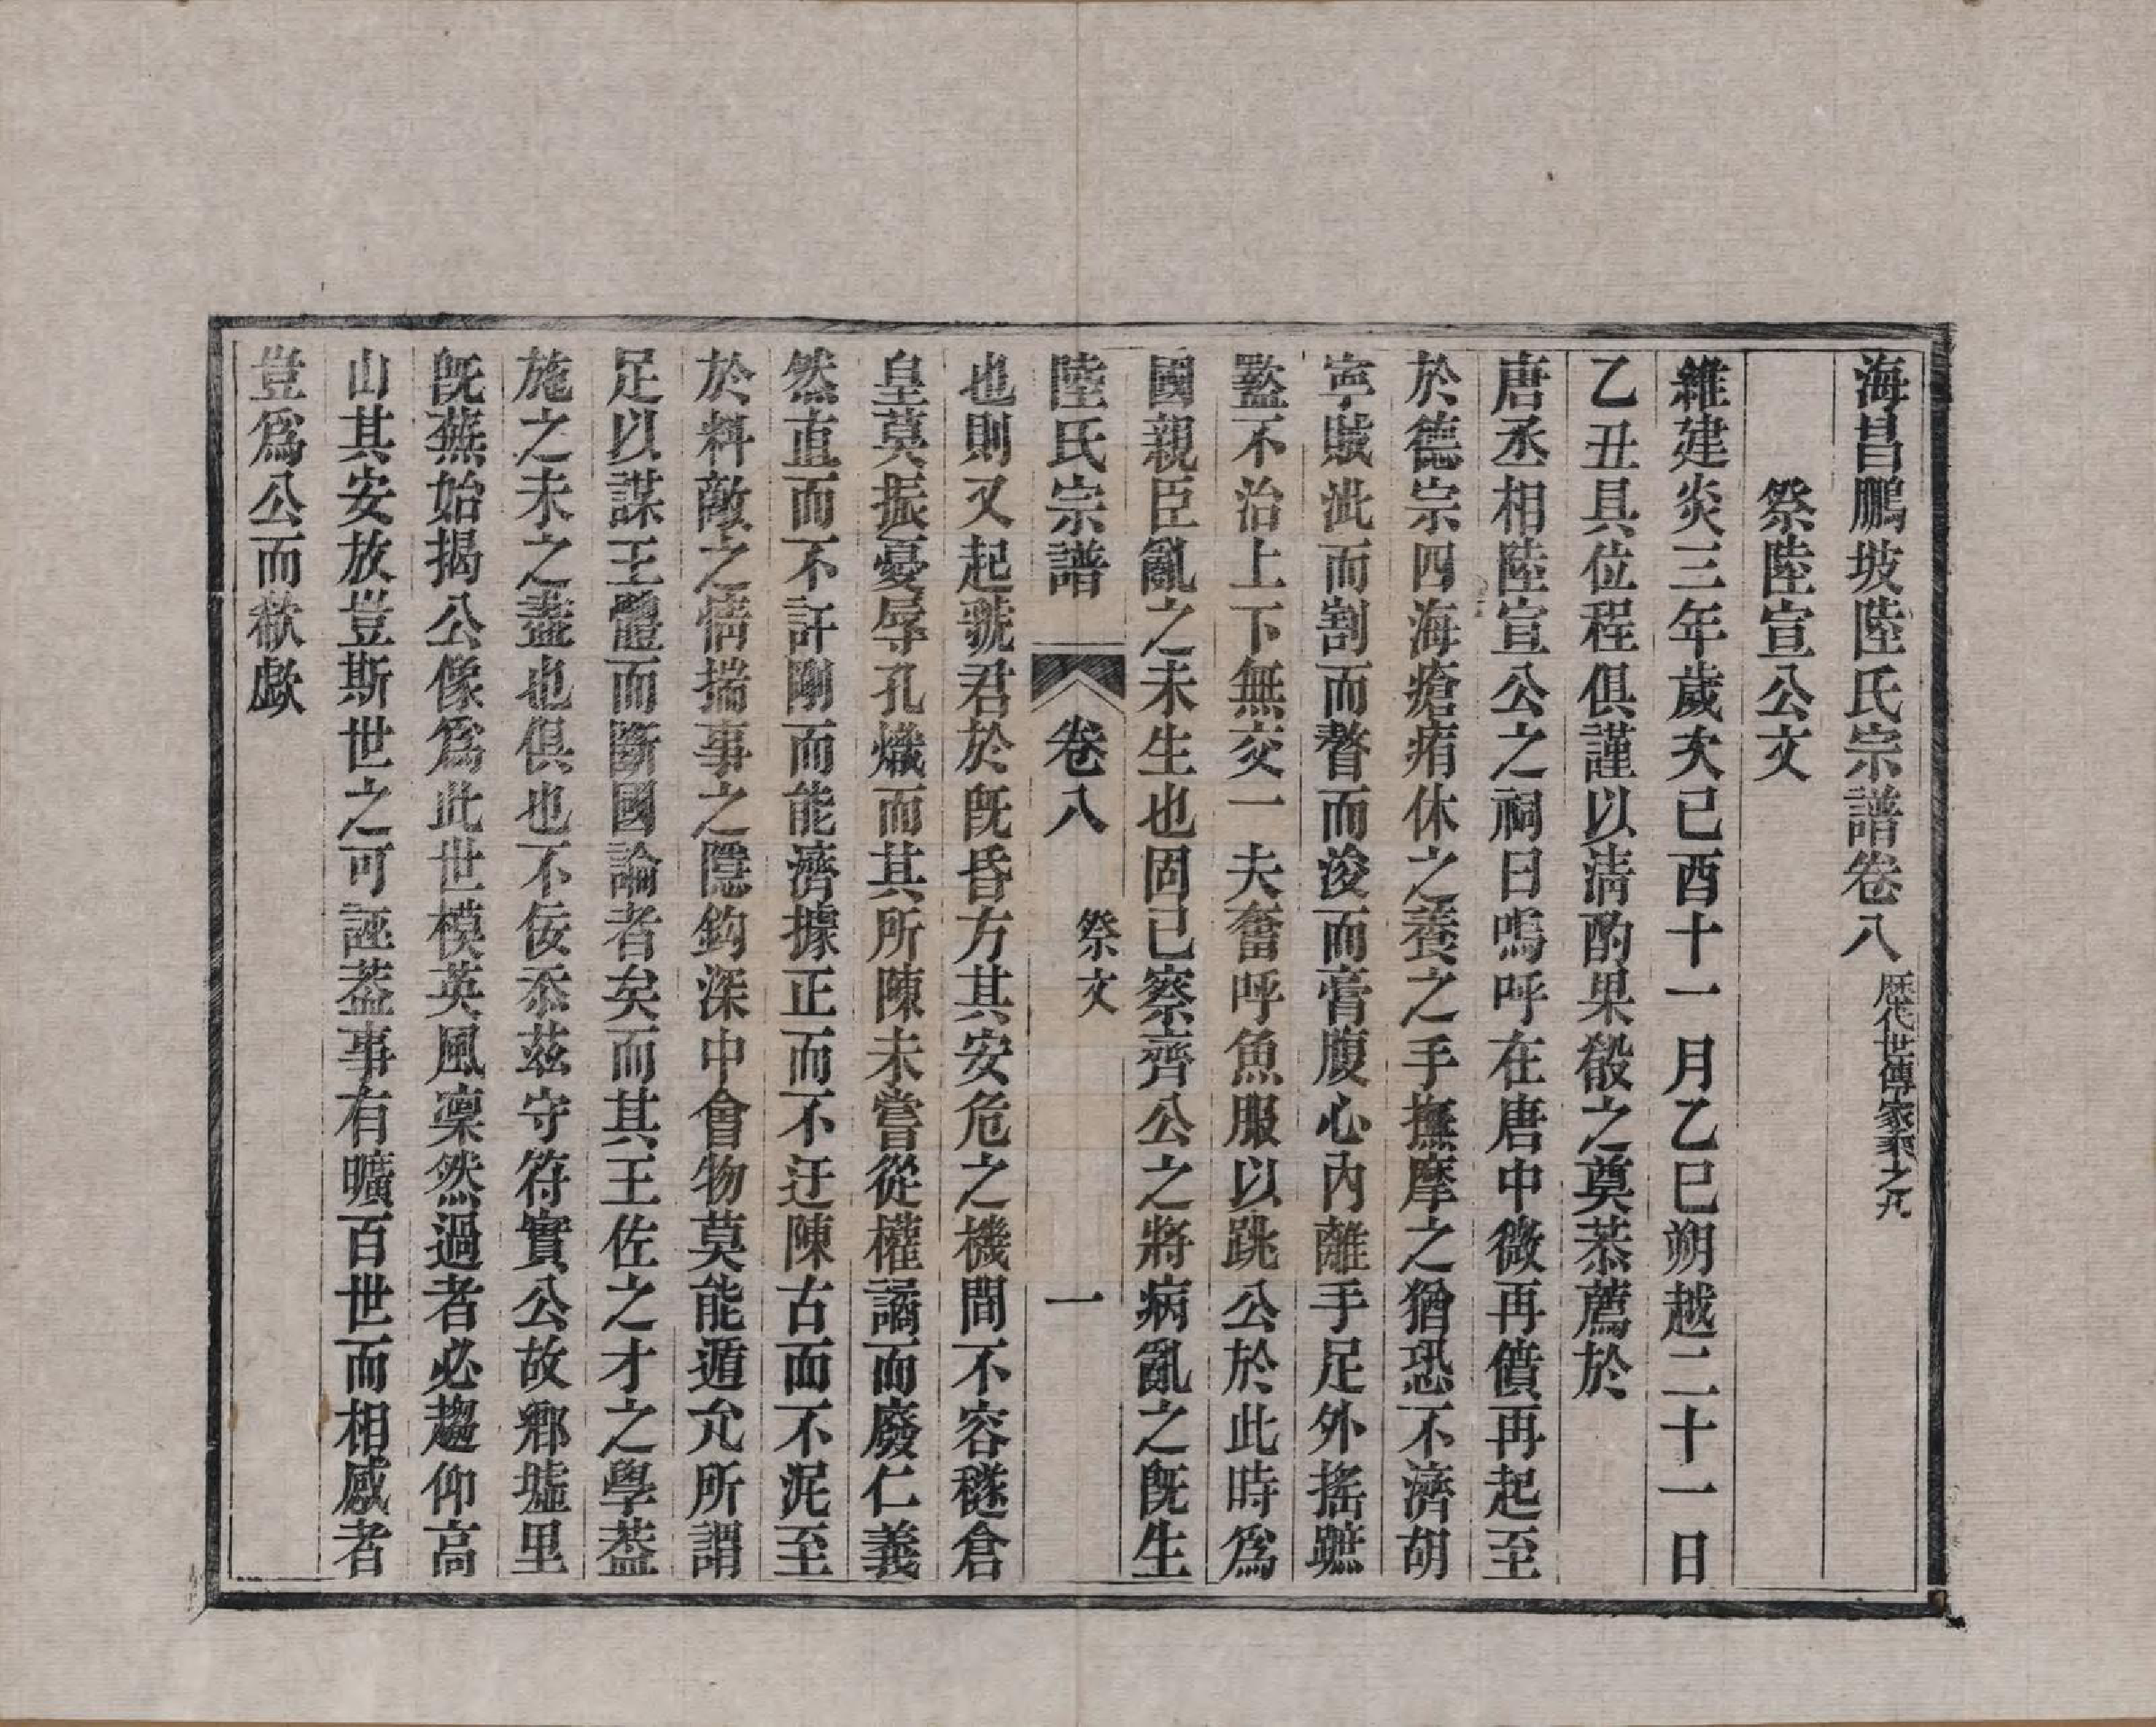 海昌鵬坡陸氏宗譜卷八 歷代世傳家乘之九
祭陸宣公文
維建炎三年歲次己酉十一月乙巳朔越二十一日
乙丑具位程俱謹以清酌果殽之奠恭薦於
唐丞相陸宣公之祠曰嗚呼在唐中微再僨再起至
於德宗四海瘡痏休之養之手撫摩之猶恐不濟胡
寧賊泚而割而瞀而浚而膏腹心內離手足外搖蹠
盭不治上下無交一夫奮呼魚服以跳公於此時為
國親臣亂之未生也固已察齊公之將病亂之旣生
陸氏宗譜 卷八 祭文 一
也則又起虢君於旣昏方其安危之機間不容穟倉
皇莫振憂辱孔熾而其所陳未嘗從權譎而廢仁義
然直而不訐剛而能濟據正而不迂陳古而不泥至
於料敵之情揣事之隱鈎深中會物莫能遁允所謂
足以謀王體而斷國論者矣而其王佐之才之學葢
施之未之盡也俱也不佞忝茲守符實公故鄉墟里
旣蕪始揭公像爲此世模英風凜然過者必趨仰高
山其安放豈斯世之可誣葢事有曠百世而相感者
豈爲公而欷歔